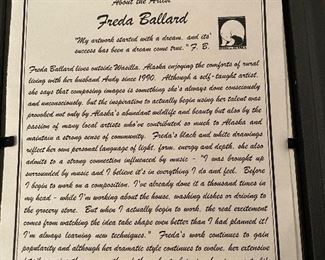 About the Artist
Freda Ballard
"My artwork started with a dream, and its'
success has been a dream come true." F. B.
Freda Ballard lives outside Wasilla, Alaska enjoying the comforts of rural
living with her husband Andy since 1990. Although a self-taught artist,
she says that composing images is something she's always done consciously
and unconsciously, but the inspiration to actually begin using her talent was
provoked not only by Alaska's abundant wildlife and beauty but also by the
passion of many local artists who've contributed so much to Alaska and
maintain a strong sense of community. Freda's black and white drawings
reflect her own personal language of light, form, energy and depth, she also
admits to a strong connection influenced by music - "I was brought up
surrounded by music and I believe it's in everything I do and feel. Before
I begin to work on a composition, I've already done it a thousand times in
my head - while I'm working about the house, washing dishes or driving to
the grocery store. But when I actually begin to work, the real excitement
comes from watching the idea take shape even better than I had planned it!
I'm always learning new techniques." Freda's work continues to gain
popularity and although her dramatic style continues to evolve, her extensive